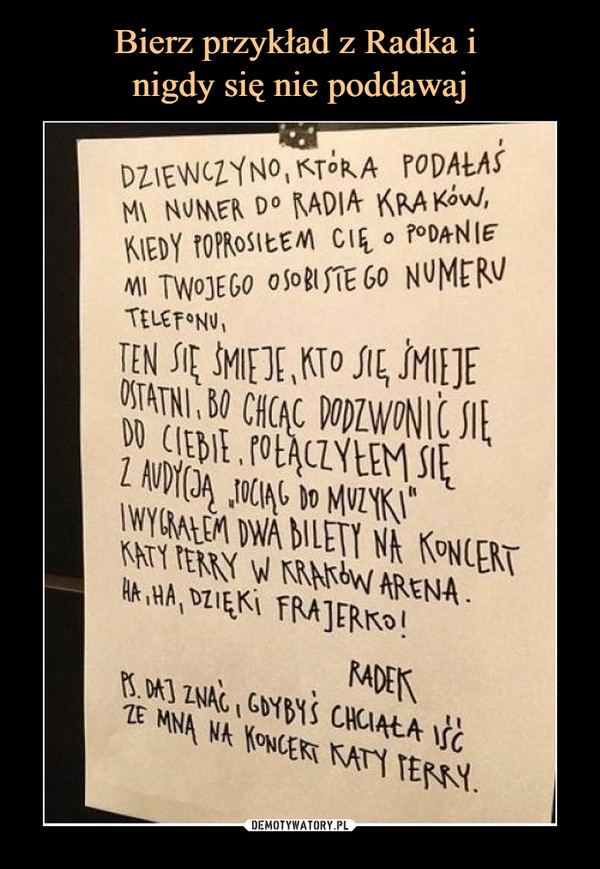 Bierz przykład z Radka i
nigdy się nie poddawaj
DZIEWCZYNO, KTÓRA PODAŁAŚ
MI NUMER DO RADIA KRAKÓW,
KIEDY POPROSIŁEM CIĘ O PODANIE
MI TWOJEGO OSOBISTEGO NUMERU
TELEFONU,
TEN SIĘ ŚMIEJE, KTO SIĘ ŚMIEJE
OSTATNI, BO CHCĄC DODZWONIĆ SIĘ
DO CIEBIE, POŁĄCZYŁEM SIĘ
Z AUDYCJĄ „POCIĄG DO MUZYKI"
I WYGRAŁEM DWA BILETY NA KONCERT
KATY PERRY W KRAKÓW ARENA.
HA, HA, DZIĘKI FRAJERKO!
RADEK
PS. DAJ ZNAĆ, GDYBYŚ CHCIAŁA IŚĆ
ZE MNĄ NA KONCERT KATY PERRY.
DEMOTYWATORY.PL